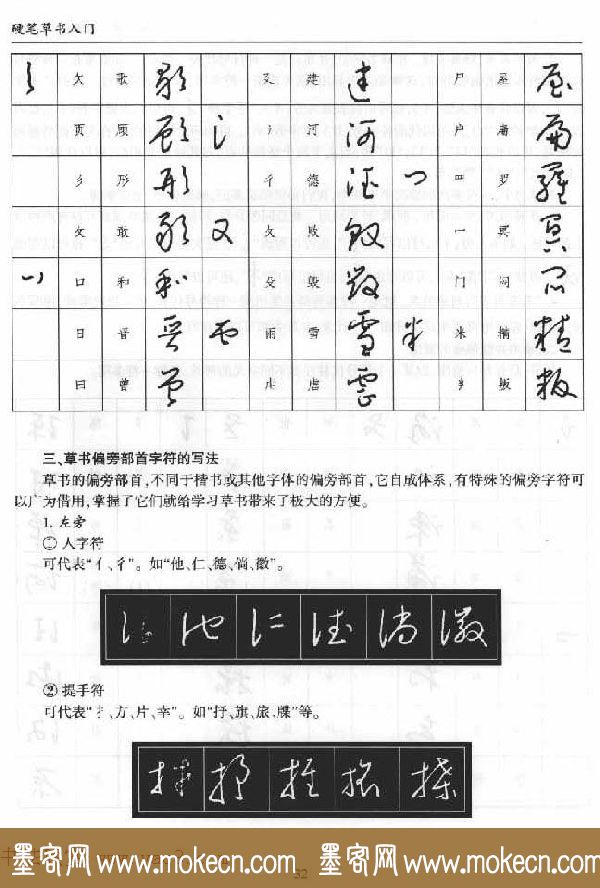 硬笔草书入门
欠 歌 歌 廴 建 建 尸 屋 屋
页 顾 顾 氵 河 河 户 扁
彡 形 形 彳 德 德 罒 罗 羅
攵 敢 敢 攵 败 败 冖 冥 冥
口 和 和 殳 毁 毁 门 问 问
日 晋 晋 雨 雪 雪 米 精 精
曰 曹 曹 虍 虐 虐 版 版
三、草书偏旁部首字符的写法
草书的偏旁部首,不同于楷书或其他字体的偏旁部首,它自成体系,有特殊的偏旁字符可
以广为借用,掌握了它们就给学习草书带来了极大的方便。
1. 左旁
① 人字符
可代表“亻、彳”。如“他、仁、德、倘、徽”。
他 仁 德 倘 徽
② 提手符
可代表“扌、方、片、幸”。如“抒、旗、旅、牒”等。
墨客网 www.mokecn.com 墨客网 www.mokecn.com
32